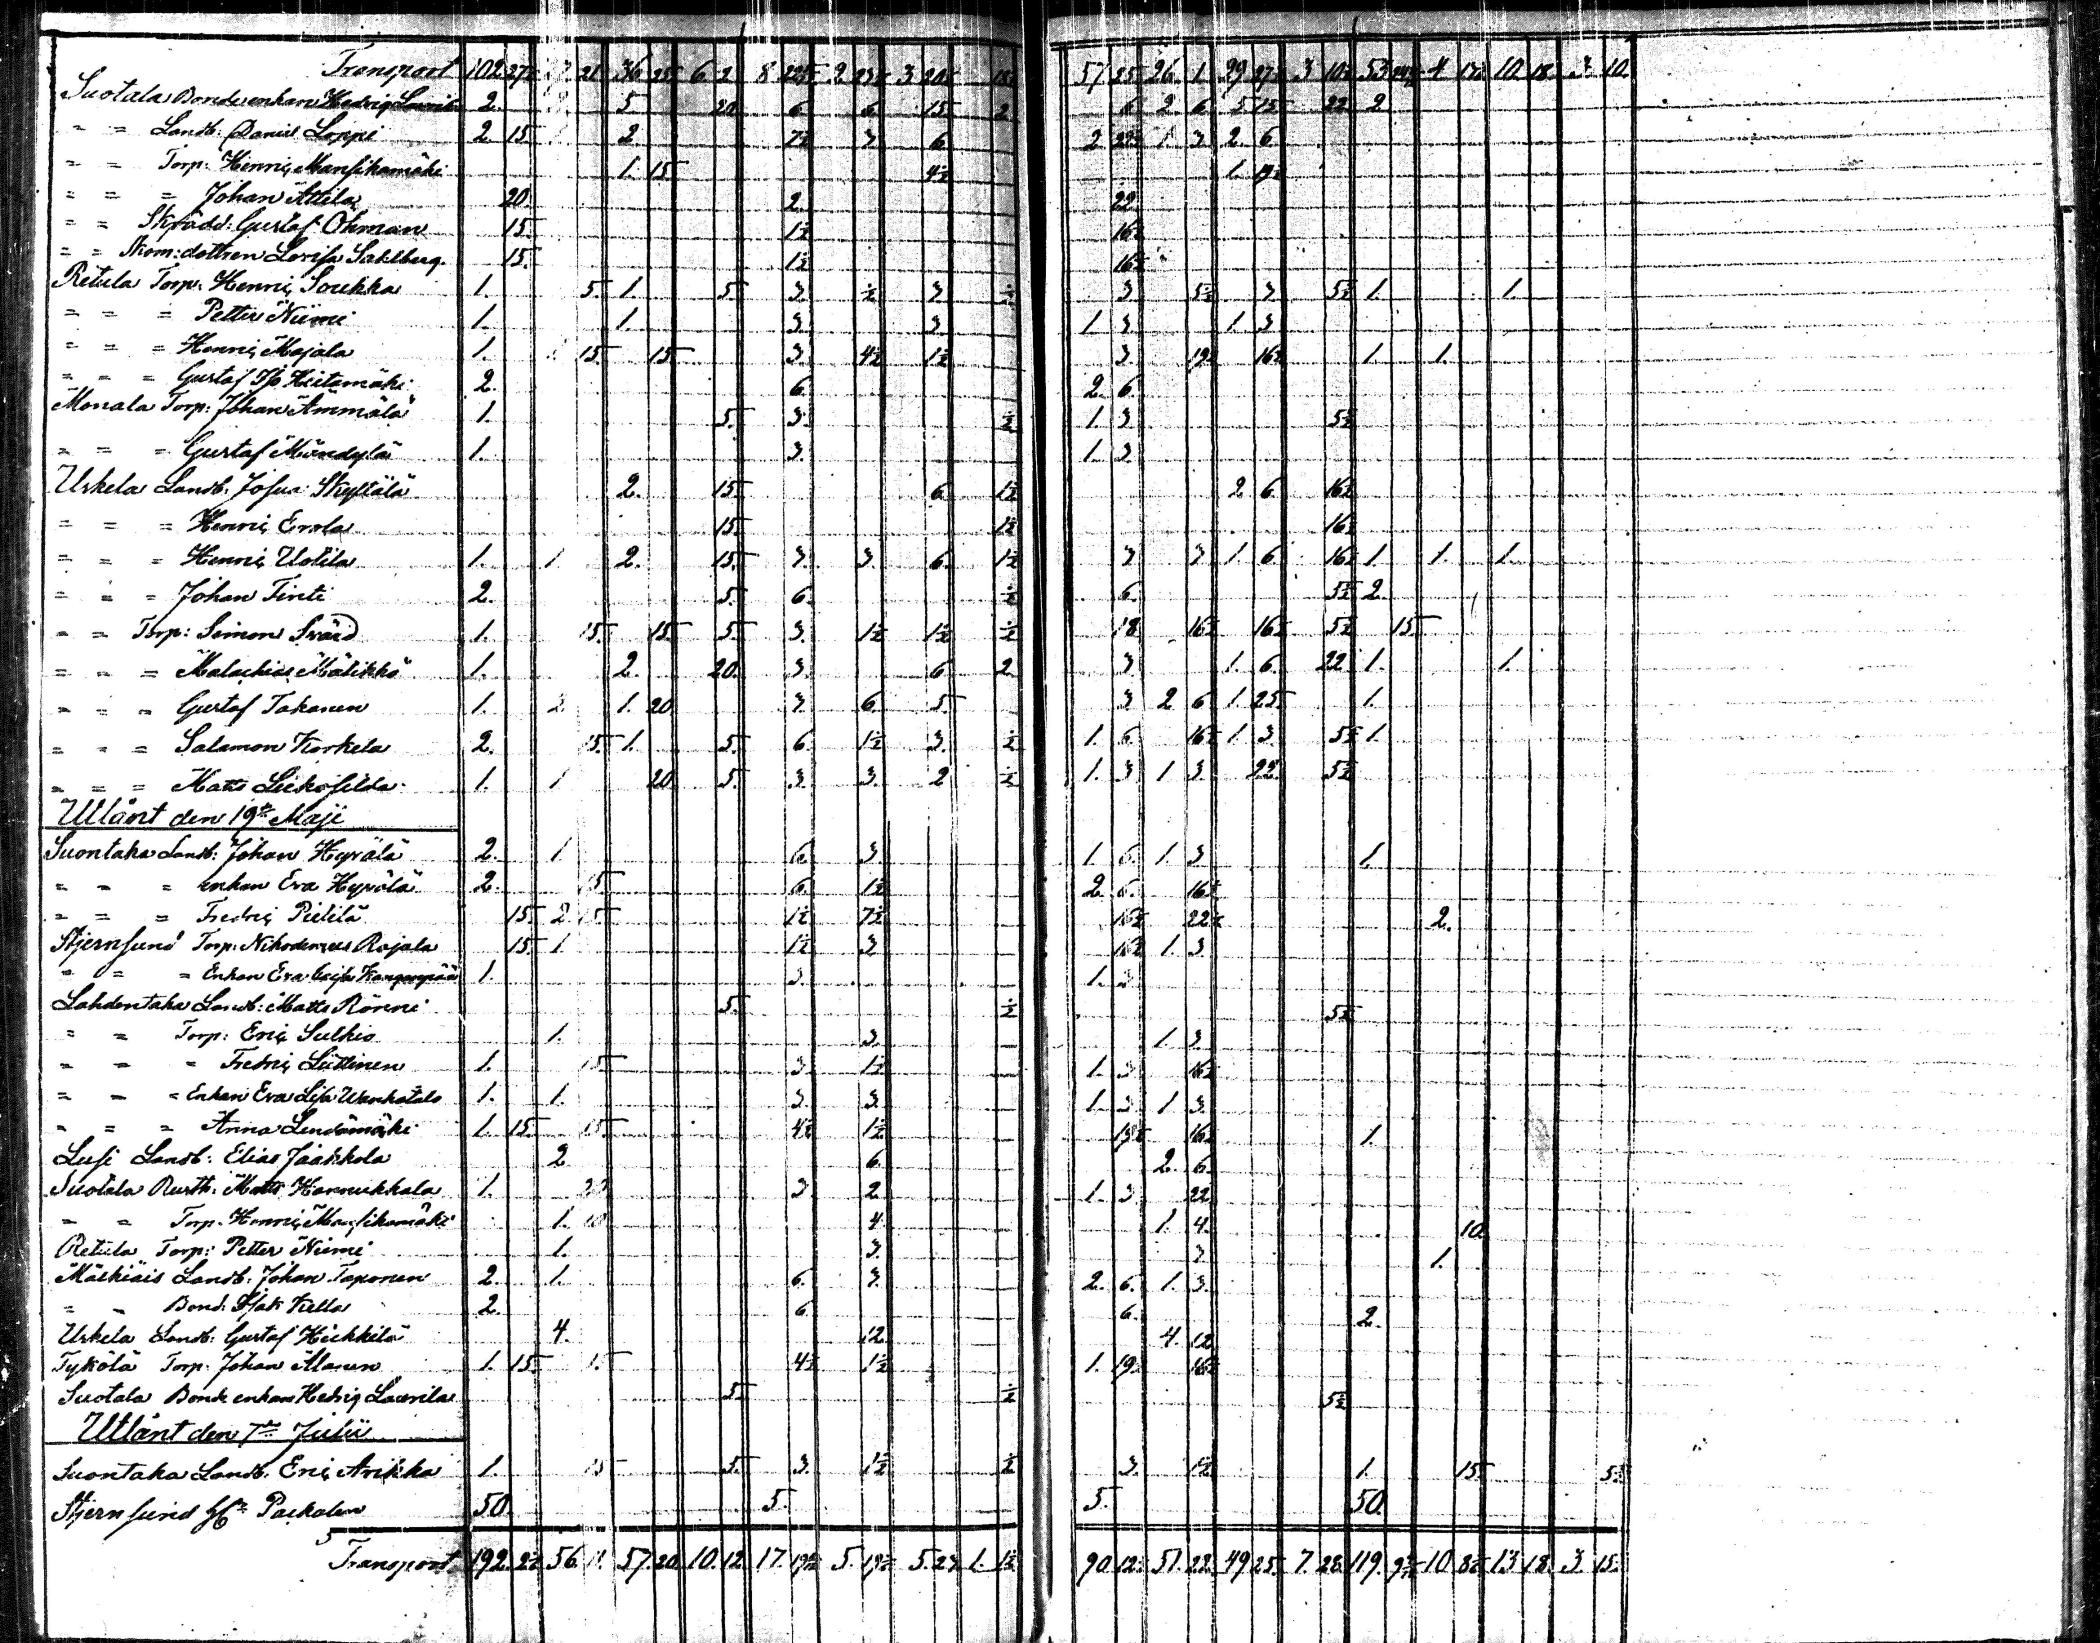 Transport 102. 27½ 21 36 25 6 2 8 22½ 2 23½ 3 20½ 18½ 57 25 26 1 29 27½ 3 10½ 53 24½ 4 17½ 10 18 3. 10.
Suotala Bonde enkan Hedvig Laurila 2. 5 20 6. 6. 15 2 6 2 6 5 15 22 2
" = Landb. Daniel Loppi 2 15. 2 7½ 3 6 2 22½ 1 3 2 6
" = Torp. Henric Mansikamäki 1. 15 4½ 1. 19½
" = = Johan Attila 20. 2 22
" = Skrädd: Gustaf Öhman 15. 1½ 16½
" = Skom: dottren Lovisa Sahlberg. 15. 1½ 16½
Retula Torp. Henric Soukka 1. 5. 1. 5. 3. ½ 3 ½ 3 5½ 3 5½ 1. 1.
= = = Petter Niemi 1. 1. 3. 3. 1. 3 1. 3
= = = Henric Majala 1. 15. 15 3. 4½ 1½ 3 19½ 16½ 1. 1.
= = = Gustaf Hiitamäki 2. 6. 2. 6.
Monala Torp: Johan Ämmälä 1. 5. 3. ½ 1. 3 5½
= = = Gustaf Mändylä 1. 3. 1. 3.
Uskela Landb. Josua Skyttälä 2. 15. 6. 1½ 2. 6. 16½
= = = Henric Erola 15. 1½ 16½
= = = Henric Uotila 1. 1 2. 15. 3. 3. 6. 1½ 3 3 1. 6. 16½ 1. 1. 1.
= = = Johan Tinti 2. 5. 6. ½ 6. 5½ 2.
= = Torp: Simon Svärd 1. 15. 15. 5. 3. 1½ 1½ ½ 18 16½ 16½ 5½ 15.
= = = Malachias Mälikkö 1. 2. 20. 3. 6 2. 3 1. 6. 22 1. 1.
= = = Gustaf Takanen 1. 2 1. 20 3. 6. 5. 3 2 6 1. 25. 1.
= = = Salamon Karkela 2. 15. 1. 5. 6. 1½ 3. ½ 1. 6. 16½ 1. 3. 5½ 1.
= = = Matts 1. 1 20. 5. 3. 3. 2 ½ 1. 3 1 3 22. 5½
Utlånt den 19de Maji
Suontaka Landb: Johan Hyrälä 2. 1. 6. 3. 1. 6. 1. 3. 1.
" - = enkan Eva Hyrälä 2. 15 6. 1½ 2. 6. 16½
" = = Fredric Pietilä 15. 2 15 1½ 7½ 16½ 22½ 2.
Stjernsund Torp: Nikodemus Rajala 15. 1. 1½ 3 16½ 1. 3
" = = Enkan Eva Caisa Kangaspää 1. 3. 1. 3
Lahdentaka Landb: Matts Rönni 5. ½ 5½
" = Torp: Eric Sulkio 1. 3. 1. 3.
" - = Fredric Lüttinen 1. 15 3. 1½ 1. 3 16½
= - = Enkan Eva Lisa Wanhatalo 1. 1. 3. 3. 1. 3 1. 3.
" = = Anna 1. 15. 15. 4½ 1½ 19½ 16½ 1.
Lusi Landb: Elias Jaakkola 2 6. 2. 6.
Suotala Rusth: Matts Hannukkala 1. 20 3. 2. 1. 3. 22
" = Torp. Henric Mansikamäki 1. 10 4. 1. 4. 10.
Retula Torp: Petter Niemi 1. 3. 3. 1.
Mälkiäis Landb: Johan Taponen 2. 1. 6. 3. 2. 6. 1. 3.
= - Bond: Isak Kulla 2. 6. 6. 2.
Uskela Landb: Gustaf Heikkilä 4. 12. 4. 12.
Tykölä Torp: Johan Alanen 1. 15. 15 4½ 1½ 1. 19½ 16½
Suotala Bonde enkan Hedvig Laurila 5. ½ 5½
Utlånt den 7de Julii
Suontaka Landb. Eric Arikka 1. 15 5. 3. 1½ ½ 3. 1½ 1. 15 5½
Stjernsund 50. 5. 5. 50.
Transport 192. 2½ 56 11. 57. 20. 10. 12. 17. 19½ 5. 19½ 5. 23 1. 1½ 90 12½ 51. 22. 49 25. 7. 28. 119. 9½ 10 8½ 13 18. 3. 15.